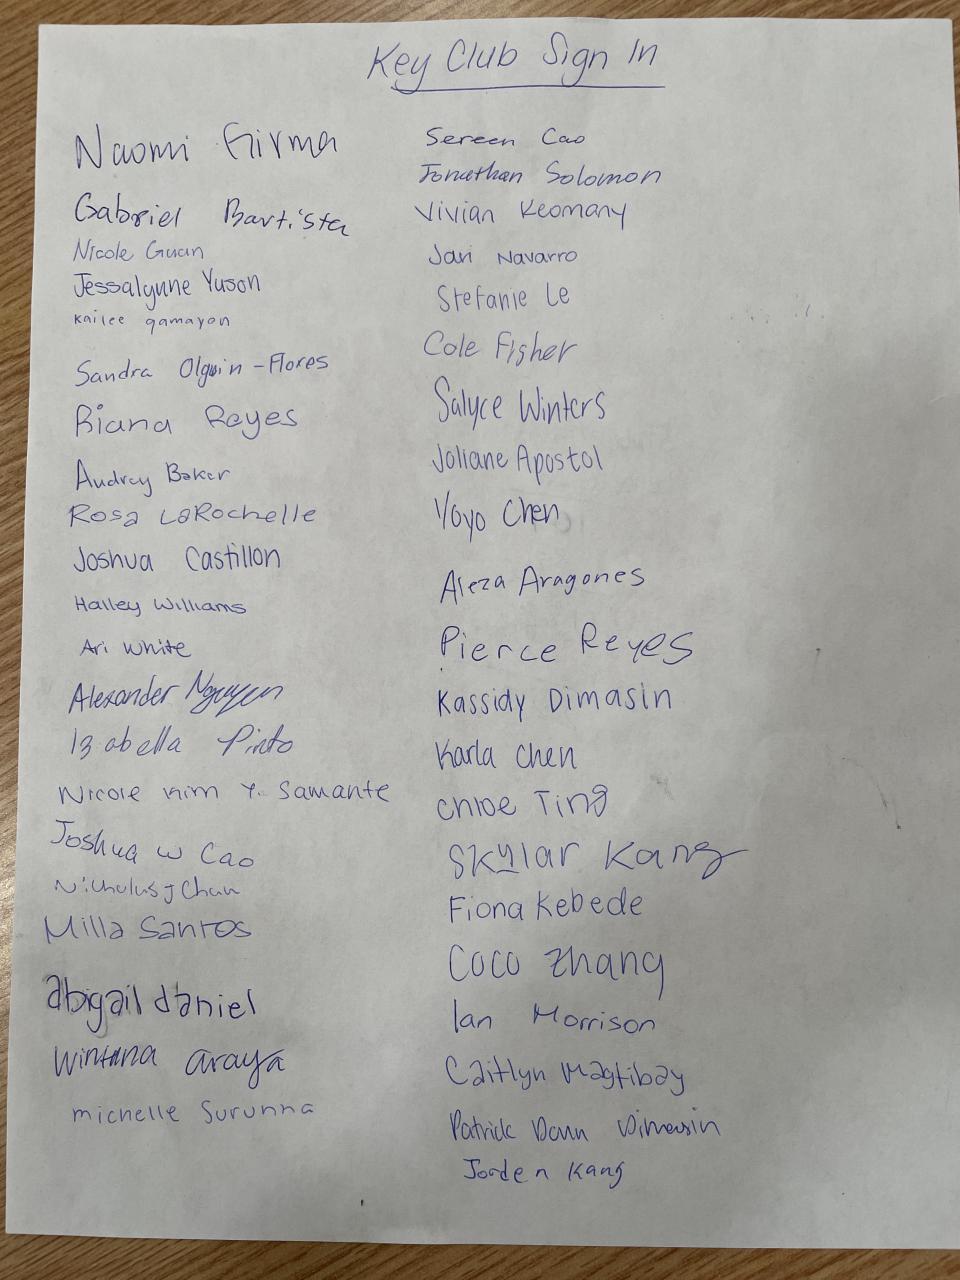 Key Club Sign In
Naomi Girma
Gabriel Bautista
Nicole Guan
Jessalynne Yuson
Kailee gamayon
Sandra Olguin-Flores
Riana Reyes
Audrey Baker
Rosa LaRochelle
Joshua Castillon
Hailey Williams
Ari White
Alexander Nguyen
Izabella Pinto
Nicole Kim Y. Samante
Joshua W Cao
Nicholus J Chan
Milla Santos
abigail daniel
Wintana araya
michelle Surunna
Sereen Cao
Jonathan Solomon
Vivian Keomany
Jari Navarro
Stefanie Le
Cole Fisher
Salyce Winters
Joliane Apostol
Yoyo Chen
Aleza Aragones
Pierce Reyes
Kassidy Dimasin
Karla Chen
Chloe Ting
Skylar Kang
Fiona Kebede
Coco Zhang
Ian Morrison
Caitlyn Magtibay
Patrick Dann Dimasin
Jorden Kang